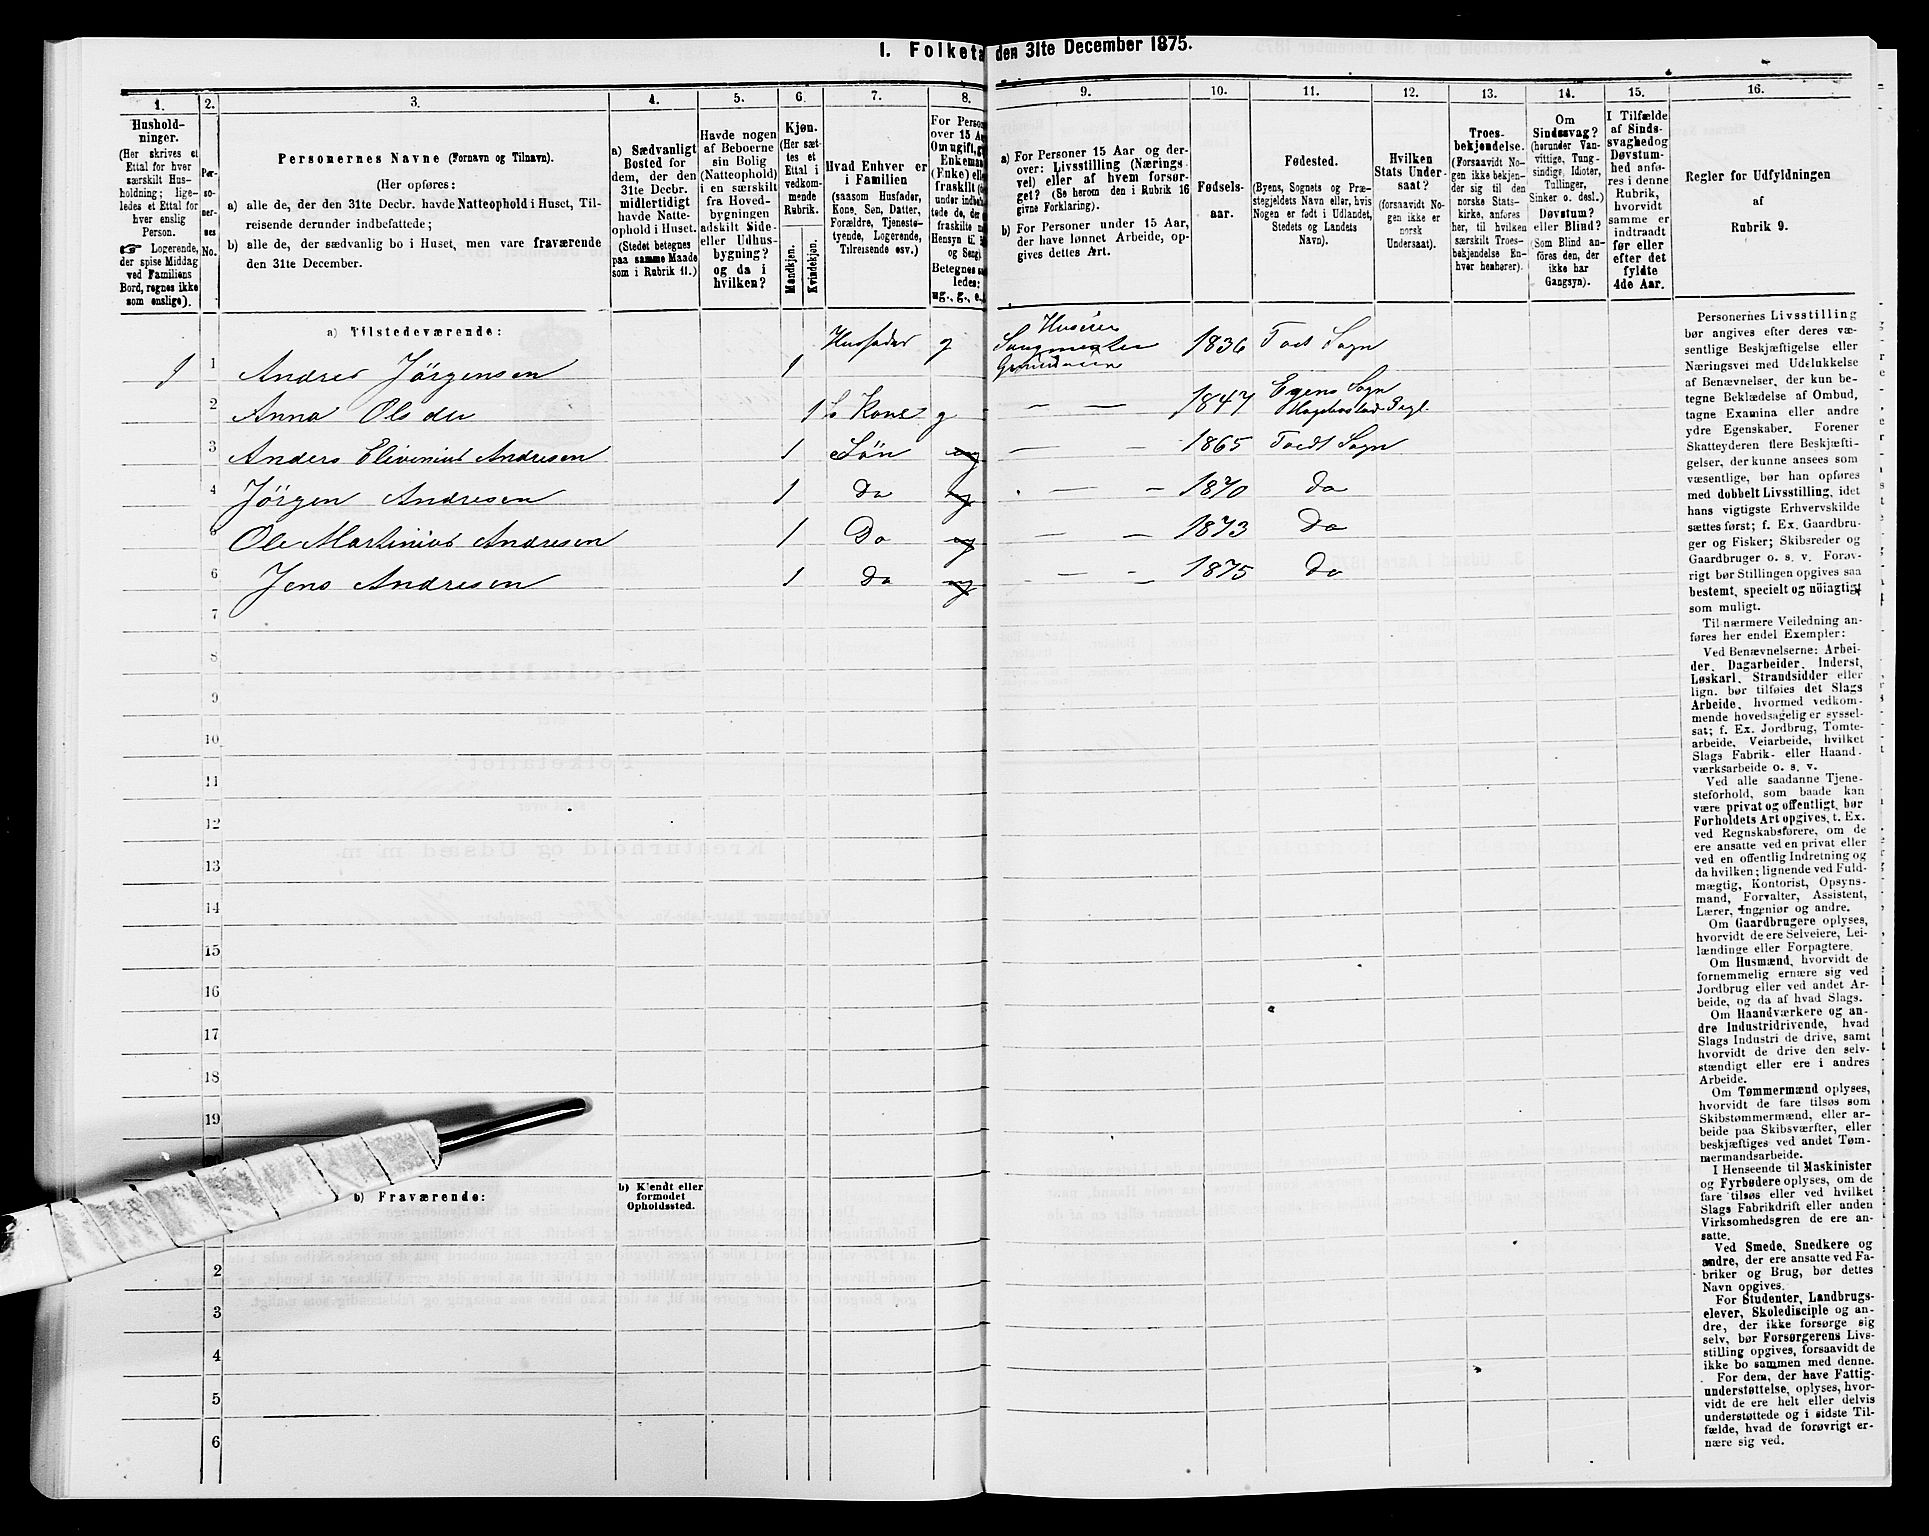 1. Folketa den 31te December 1875.
1. 2. 3. 4. 5. 6. 7. 8. 9. 10. 11. 12. 13. 14. 15. 16.
Hushold-
ninger.
(Her skrives et
Ettal for hver
særskilt Hus-
holdning; lige-
ledes et Ettal for
hver enslig
Person.
☞ Logerende,
der spise Middag
ved Familiens
Bord, regnes ikke
som enslige).
Per-
so-
ner-
nes
No.
Personernes Navne (Fornavn og Tilnavn).
(Her opføres:
a) alle de, der den 31te Decbr. havde Natteophold i Huset, Til-
reisende derunder indbefattede;
b) alle de, der sædvanlig bo i Huset, men vare fraværende
den 31te December.
a) Sædvanligt
Bosted for
dem, der den
31te Decbr.
midlertidigt
havde Natte-
ophold i Huset.
(Stedet betegnes
paa samme Maade
som i Rubrik 11.)
Havde nogen
af Beboerne
sin Bolig
(Natteophold)
i en særskilt
fra Hoved-
bygningen
adskilt Side-
eller Udhus-
bygning?
og da i
hvilken?
Kjøn.
(Her sæt-
tes et
Ettal i
vedkom-
mende
Rubrik.
Mandkjøn.
Kvindekjøn.
Hvad Enhver er
i Familien
(saasom Husfader,
Kone, Søn, Datter,
Forældre, Tjeneste-
tyende, Logerende,
Tilreisende osv.)
For Person
over 15 Aa
Om ugift, g
Enkeman
(Fnke) elle
fraskilt (
under indbe
tede de, der
fraskilte m
Hensyn til
og Seng).
Betegnes sa
ledes:
ug., g., e.,
a) For Personer 15 Aar og der-
over: Livsstilling (Nærings-
vei) eller af hvem forsør-
get? (Se herom den i Rubrik 16
givne Forklaring).
b) For Personer under 15 Aar,
der have lønnet Arbeide, op-
gives dettes Art.
Fødsels-
aar.
Fødested.
(Byens, Sognets og Præ-
stegjeldets Navn eller, hvis
Nogen er født i Udlandet,
Stedets og Landets
Navn).
Hvilken
Stats Under-
saat?
(forsaavidt No-
gen ikke er
norsk
Undersaat).
Troes-
bekjendelse.
(Forsaavidt No-
gen ikke bekjen-
der sig til den
norske Stats-
kirke, anføres
her, til hvilken
særskilt Troes-
bekjendelse En-
hver henhører).
Om
Sindssvag?
(herunder Van-
vittige, Tung-
sindige, Idioter,
Tullinger,
Sinker o. desl.)
Døvstum?
eller Blind?
(Som Blind an-
føres den, der
ikke har
Gangsyn).
I Tilfælde
af Sinds-
svaghed og
Døvstum-
hed anfø-
res i denne
Rubrik,
hvorvidt
samme er
indtraadt
før eller
efter det
fyldte
4de Aar.
Regler for Udfyldningen
af
Rubrik 9.
a) Tilstedeværende:
1 1 Andres Jörgensen 1 Husfader g Huseier Saugmester 1836 Foss Sogn
2 Anna Olsdtr 1 Kone g — — 1847 Egens Sogn
3 Anders Elivenius Andresen 1 Søn ug — — 1865 Sogn
4 Jörgen Andresen 1 Do ug — — 1870 Do
5 Ole Martinius Andresen 1 Do ug — — 1873 Do
6 Jens Andresen 1 Do ug — — 1875 Do
7
8
9
10
11
12
13
14
15
16
17
18
19
b) Fraværende:
b) Kjendt eller
formodet
Opholdssted.
2
3
4
5
6
Personernes Livsstilling
bør angives efter deres væ-
sentlige Beskjæftigelse eller
Næringsvei med Udelukkelse
af Benævnelser, der kun be-
tegne Beklædelse af Ombud,
tagne Examina eller andre
ydre Egenskaber. Forener
Skatteyderen flere Beskjæfti-
gelser, der kunne ansees som
væsentlige, bør han opføres
med dobbelt Livsstilling, idet
hans vigtigste Erhvervskilde
sættes først; f. Ex. Gaardbru-
ger og Fisker; Skibsreder og
Gaardbruger o. s. v. Forøv-
rigt bør Stillingen opgives saa
bestemt, specielt og nøiagtigt
som muligt.
Til nærmere Veiledning an-
føres her endel Exempler:
Ved Benævnelserne: Arbei-
der, Dagarbeider, Inderst,
Løskarl, Strandsidder eller
lign. bør tilføies det Slags
Arbeide, hvormed vedkom-
mende hovedsagelig er syssel-
sat; f. Ex. Jordbrug, Tomte-
arbeide, Veiarbeide, hvilket
Slags Fabrik- eller Haand-
værksarbeide o. s. v.
Ved alle saadanne Tjene-
steforhold, som baade kan
være privat og offentligt, bør
Forholdets Art opgives, t. Ex.
ved Regnskabsførere, om de
ere ansatte ved en privat eller
ved en offentlig Indretning og
da hvilken; lignende ved Fuld-
mægtig, Kontorist, Opsyns-
mand, Forvalter, Assistent,
Lærer, Ingeniør og andre.
Om Gaardbrugere oplyses,
hvorvidt de ere Selveiere, Lei-
lændinge eller Forpagtere.
Om Husmænd, hvorvidt de
fornemmelig ernære sig ved
Jordbrug eller ved andet Ar-
beide, og da af hvad Slags.
Om Haandværkere og an-
dre Industridrivende, hvad
Slags Industri de drive, samt
hvorvidt de drive den selv-
stændigt eller ere i andres
Arbeide.
Om Tømmermænd oplyses,
hvorvidt de fare tilsøs som
Skibstømmermænd, eller ar-
beide paa Skibsværfter, eller
beskjæftiges ved andet Tøm-
mermandsarbeide.
I Henseende til Maskinister
og Fyrbødere oplyses, om de
fare tilsøs eller ved hvilket
Slags Fabrikdrift eller anden
Virksomhedsgren de ere an-
satte.
Ved Smede, Snedkere og
andre, der ere ansatte ved Fa-
briker og Brug, bør dettes
Navn opgives.
For Studenter, Landbrugs-
elever, Skoledisciple og an-
dre, der ikke forsørge sig
selv, bør Forsørgerens Livs-
stilling opgives, forsaavidt de
ikke bo sammen med denne.
For dem, der have Fattig-
understøttelse, oplyses, hvor-
vidt de ere helt eller delvis
understøttede og i sidste Til-
fælde, hvad de forøvrigt er-
nære sig ved.